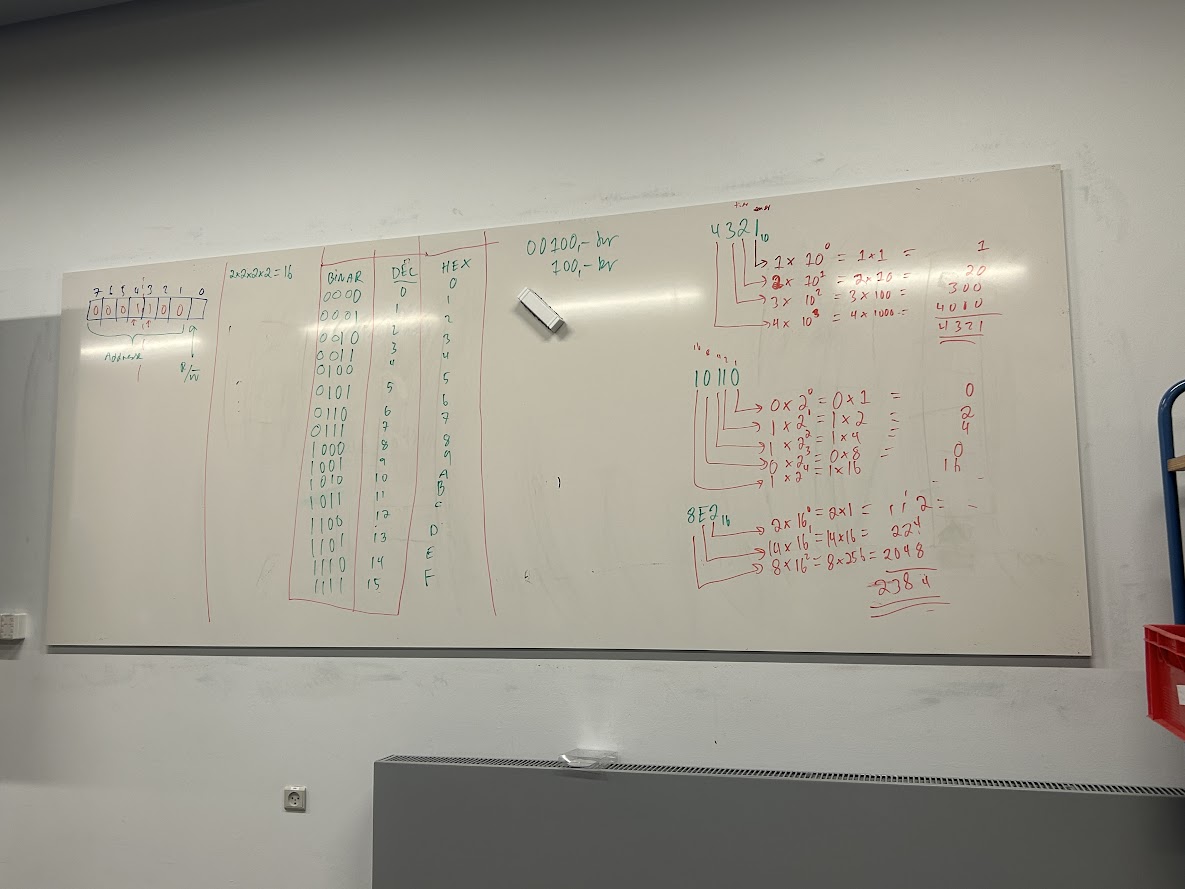 7 6 5 4 3 2 1 0
0 0 0 1 1 0 0
Address
R/W
2x2x2x2=16
BINAR DEC HEX
0000 0 0
0001 1 1
0010 2 2
0011 3 3
0100 4 4
0101 5 5
0110 6 6
0111 7 7
1000 8 8
1001 9 9
1010 10 A
1011 11 B
1100 12 C
1101 13 D
1110 14 E
1111 15 F
00100,- kr
100,- kr
4321₁₀
1 x 10⁰ = 1x1 = 1
2 x 10¹ = 2x10 = 20
3 x 10² = 3x100 = 300
4 x 10³ = 4x1000 = 4000
4321
16 8 4 2 1
10110
0 x 2⁰ = 0x1 = 0
1 x 2¹ = 1x2 = 2
1 x 2² = 1x4 = 4
0 x 2³ = 0x8 = 0
1 x 2⁴ = 1x16
8E2₁₆
2 x 16⁰ = 2x1 = 2 =
14 x 16¹ = 14x16 = 224
8 x 16² = 8x256 = 2048
2384